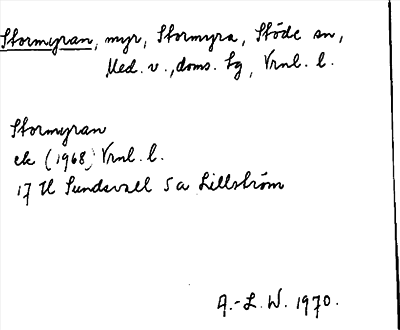 Stormyran, myr, Stormyra, Stöde sn,
Med. v., doms. sg, Vrnl. l.
Stormyran
ek (1968) Vrnl. l.
17 H Sundsvall 5 a Lillström
A.-L. W. 1970.